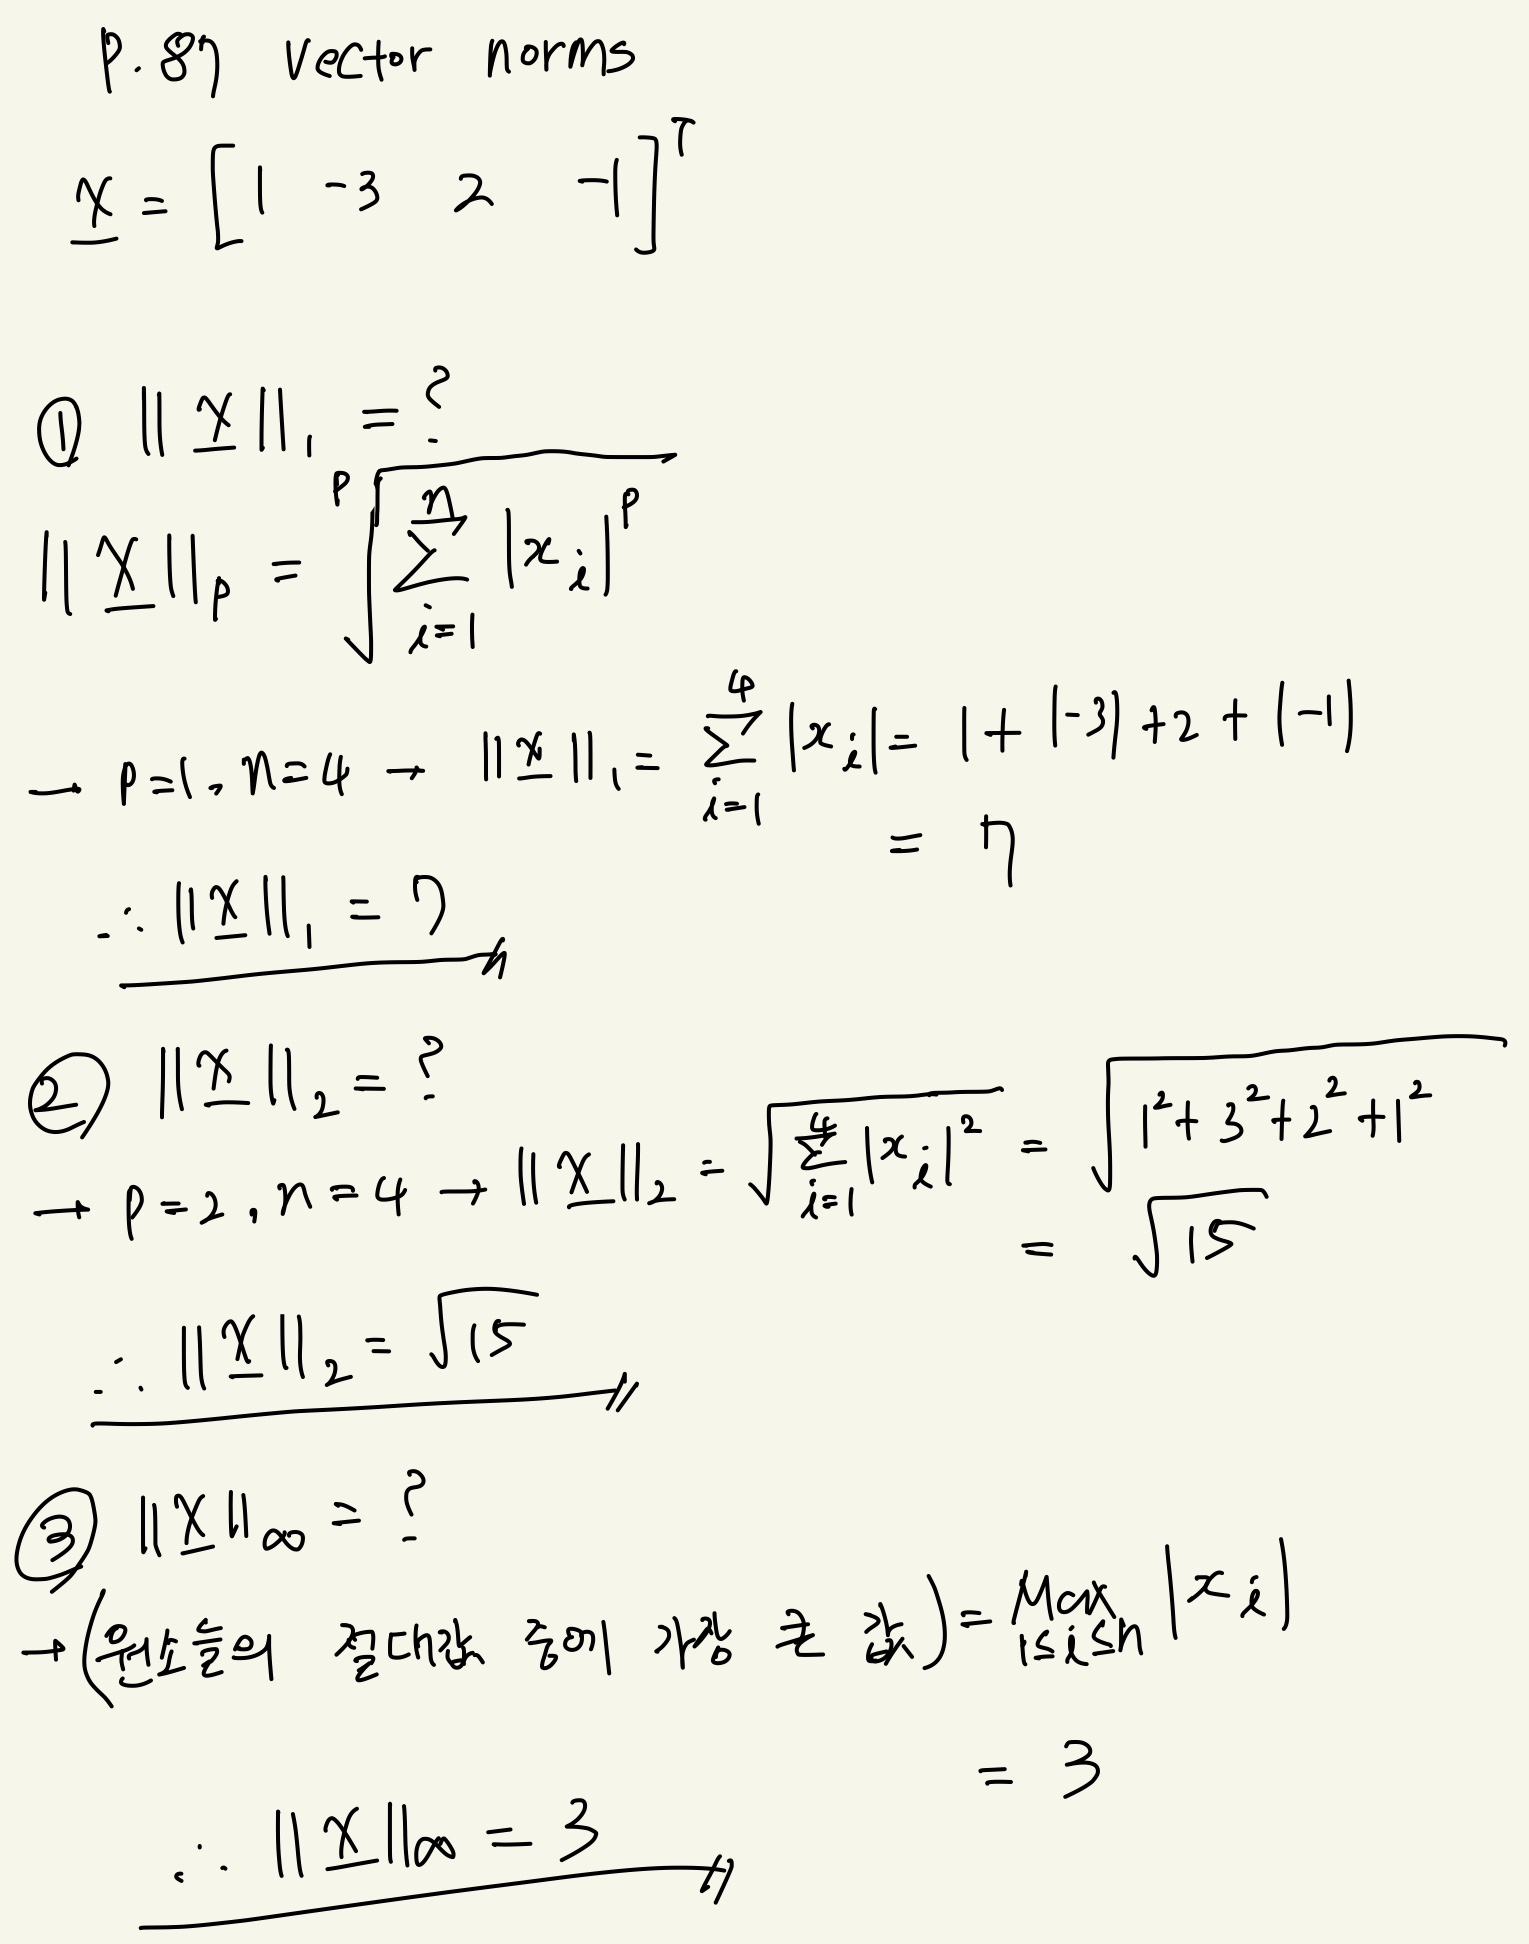 P.87 vector norms
x = [1 -3 2 -1]^T
① ||x||₁ = ?
||x||_p = ᵖ√(∑_{i=1}^{n} |x_i|^p)
→ P=1, n=4 → ||x||₁ = ∑_{i=1}^{4} |x_i| = 1 + |-3| + 2 + |-1|
= 7
∴ ||x||₁ = 7
② ||x||₂ = ?
→ P=2, n=4 → ||x||₂ = √(∑_{i=1}^{4} |x_i|²) = √(1² + 3² + 2² + 1²)
= √15
∴ ||x||₂ = √15
③ ||x||_∞ = ?
→ (원소들의 절대값 중에 가장 큰 값) = Max_{1≤i≤n} |x_i|
= 3
∴ ||x||_∞ = 3